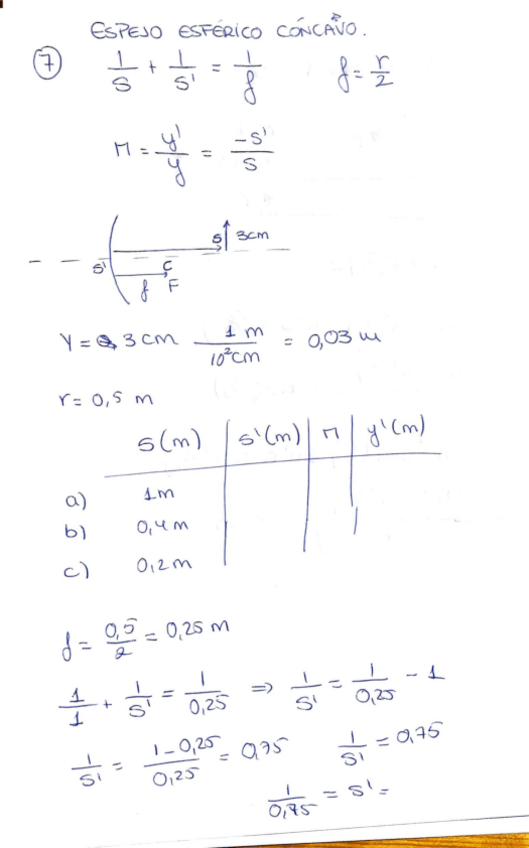 ESPEJO ESFÉRICO CÓNCAVO.
7 1/s + 1/s' = 1/f f = r/2
M = y'/y = -s'/s
s 3cm
s' C
f F
Y = 3 cm 1 m / 10² cm = 0,03 m
r = 0,5 m
s(m) s'(m) M y'(m)
a) 1m
b) 0,4 m
c) 0,2 m
f = 0,5/2 = 0,25 m
1/1 + 1/s' = 1/0,25 ⇒ 1/s' = 1/0,25 - 1
1/s' = 1-0,25/0,25 = 0,75 1/s' = 0,75
1/0,75 = s' =